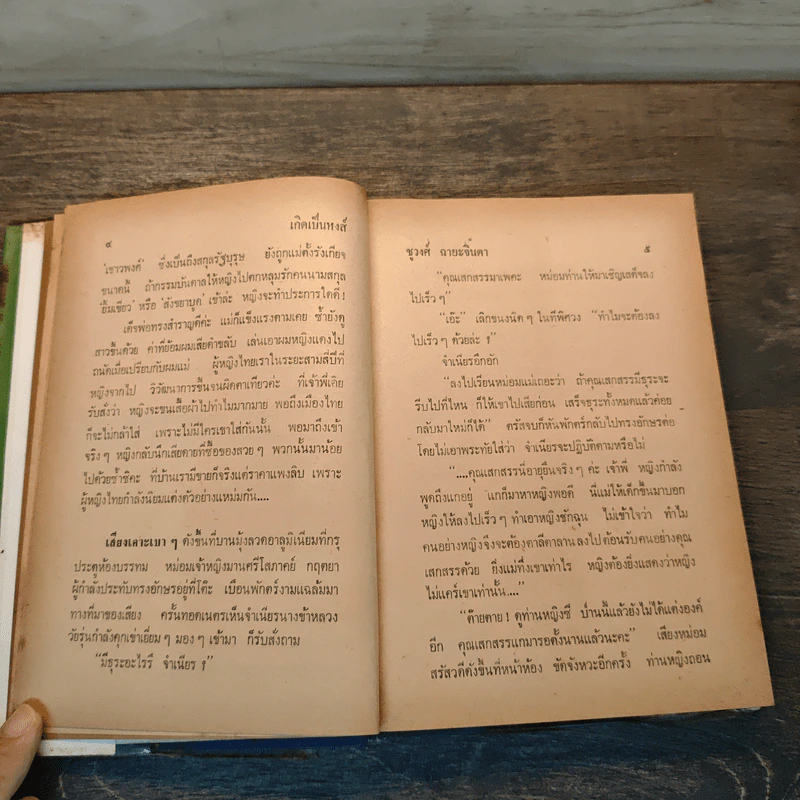 ๔
เกิดเป็นหงส์
'เชาวพงศ์' ซึ่งเป็นถึงสกุลรัฐบุรุษ ยังถูกแม่ตั้งรังเกียจ
ขนาดนี้ ถ้ากรรมบันดาลให้หญิงไปตกหลุมรักคนนามสกุล
'ยิ้มเขียว' หรือ 'สังขยาบูด' เข้าล่ะ หญิงจะทำประการใดดี!
เด็จพ่อทรงสำราญดีค่ะ แม่ก็แข็งแรงตามเคย ซ้ำยังดู
สาวขึ้นด้วย ค่าที่ย้อมผมเสียดำขลับ เล่นเอาผมหญิงแดงไป
ถนัดเมื่อเปรียบกับผมแม่ ผู้หญิงไทยเราในระยะสามสี่ปีที่
หญิงจากไป วิวัฒนาการขึ้นจนผิดตาเทียวค่ะ ที่เจ้าพี่เอิย
รับสั่งว่า หญิงจะขนเสื้อผ้าไปทำไมมากมาย พอถึงเมืองไทย
ก็จะไม่กล้าใส่ เพราะไม่มีใครเขาใส่กันนั้น พอมาถึงเข้า
จริง ๆ หญิงกลับนึกเสียดายที่ซื้อของสวย ๆ พวกนั้นมาน้อย
ไปด้วยซ้ำซิคะ ที่บ้านเรามีขายก็จริงแต่ราคาแพงลิบ เพราะ
ผู้หญิงไทยกำลังนิยมแต่งตัวอย่างแหม่มกัน....
เสียงเคาะเบา ๆ ดังขึ้นที่บานมุ้งลวดอาลูมิเนียมที่กรุ
ประตูห้องบรรทม หม่อมเจ้าหญิงมานศรีโสภาคย์ กฤตยา
ผู้กำลังประทับทรงอักษรอยู่ที่โต๊ะ เบือนพักตร์งามแฉล้มมา
ทางที่มาของเสียง ครั้นทอดเนตรเห็นจำเนียรนางข้าหลวง
วัยรุ่นกำลังคุกเข่าเยี่ยม ๆ มอง ๆ เข้ามา ก็รับสั่งถาม
"มีธุระอะไรรึ จำเนียร ?"
ชูวงศ์ ฉายะจินดา
๕
"คุณเสกสรรมาเพคะ หม่อมท่านให้มาเชิญเสด็จลง
ไปเร็ว ๆ"
"เอ๊ะ" เลิกขนงนิด ๆ ในทีพิศวง "ทำไมจะต้องลง
ไปเร็ว ๆ ด้วยล่ะ ?"
จำเนียรอึกอัก
"ลงไปเรียนหม่อมแม่เถอะว่า ถ้าคุณเสกสรรมีธุระจะ
รีบไปที่ไหน ก็ให้เขาไปเสียก่อน เสร็จธุระทั้งหมดแล้วค่อย
กลับมาใหม่ก็ได้" ตรัสจบก็หันพักตร์กลับไปทรงอักษรต่อ
โดยไม่เอาพระทัยใส่ว่า จำเนียรจะปฏิบัติตามหรือไม่
"....คุณเสกสรรนี่อายุยืนจริง ๆ ค่ะ เจ้าพี่ หญิงกำลัง
พูดถึงแกอยู่ แกก็มาหาหญิงพอดี นี่แม่ให้เด็กขึ้นมาบอก
หญิงให้ลงไปเร็ว ๆ ทำเอาหญิงชักฉุน ไม่เข้าใจว่า ทำไม
คนอย่างหญิงจึงจะต้องตาลีตาลานลงไปต้อนรับคนอย่างคุณ
เสกสรรด้วย ยิ่งแม่ทึ่งเขาเท่าไร หญิงต้องยิ่งแสดงว่าหญิง
ไม่แคร์เขาเท่านั้น...."
"ต๊ายตาย! ดูท่านหญิงซี ป่านนี้แล้วยังไม่ได้แต่งองค์
อีก คุณเสกสรรแกมารอตั้งนานแล้วนะคะ" เสียงหม่อม
สรัสวดีดังขึ้นที่หน้าห้อง ขัดจังหวะอีกครั้ง ท่านหญิงถอน